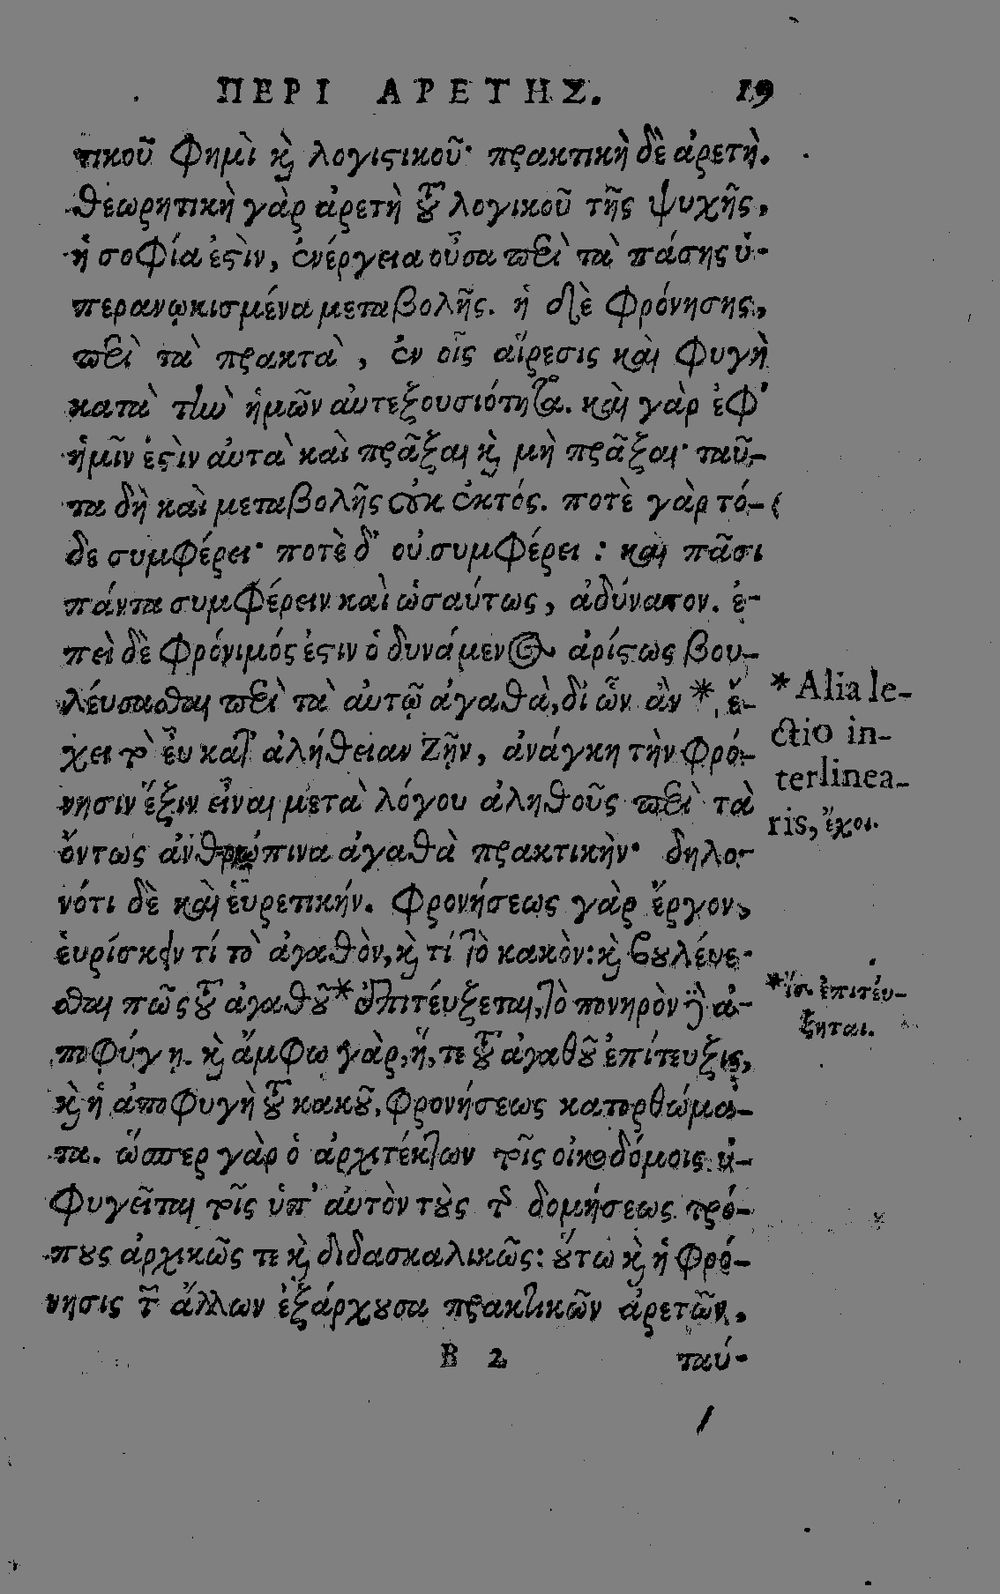 ΠΕΡΙ ΑΡΕΤΗΣ. 19
τικοῦ φημὶ καὶ λογιϛικοῦ· πρακτικὴ δὲ ἀρετὴ.
θεωρητικὴ γὰρ ἀρετὴ τοῦ λογικοῦ τῆς ψυχῆς,
ἡ σοφία ἐϛὶν, ἐνέργεια οὖσα περὶ τὰ πάσης ὑ-
περανῳκισμένα μεταβολῆς. ἡ δὲ φρόνησης,
περὶ τὰ πρακτὰ, ἐν οἷς αἵρεσις καὶ φυγὴ
κατὰ τὴν ἡμῶν αὐτεξουσιότητα. καὶ γὰρ ἐφ'
ἡμῖν ἐϛὶν αὐτὰ καὶ πρᾶξαι καὶ μὴ πρᾶξαι· ταῦ-
τα δὴ καὶ μεταβολῆς οὐκ ἐκτός. ποτὲ γὰρ τό-
δε συμφέρει· ποτὲ δ' οὐ συμφέρει: καὶ πᾶσι
πάντα συμφέρειν καὶ ὡσαύτως, ἀδύνατον. ἐ-
πεὶ δὲ φρόνιμός ἐϛιν ὁ δυνάμενος ἀρίϛως βου-
λέυσασθαι περὶ τὰ αὐτῷ ἀγαθὰ, δι' ὧν ἂν *, ἔ-
χει τὸ εὖ κατ' ἀλήθειαν ζῆν, ἀνάγκη τὴν φρό-
νησιν ἕξιν εἶναι μετὰ λόγου ἀληθοῦς περὶ τὰ
ὄντως ἀνθρώπινα ἀγαθὰ πρακτικὴν· δηλο-
νότι δὲ καὶ ἑυρετικήν. φρονήσεως γὰρ ἔργον,
ἑυρίσκειν τί τὸ ἀγαθὸν, καὶ τί τὸ κακὸν: καὶ βουλέυε-
σθαι πῶς τοῦ ἀγαθοῦ* ἐπιτέυξεται, τὸ πονηρὸν δὲ ἀ-
ποφύγῃ. καὶ ἄμφω γὰρ, ἥ, τε τοῦ ἀγαθοῦ ἐπίτευξις,
καὶ ἡ ἀποφυγὴ τοῦ κακοῦ, φρονήσεως κατορθώμα-
τα. ὥσπερ γὰρ ὁ ἀρχιτέκτων τοῖς οἰκοδόμοις ὑ-
φυγεῖται τοῖς ὑπ' αὐτὸν τοὺς τῆς δομήσεως τρό-
πους ἀρχικῶς τε καὶ διδασκαλικῶς: οὕτω καὶ ἡ φρό-
νησις τῶν ἄλλων ἐξάρχουσα πρακτικῶν ἀρετῶν,
B 2 ταύ-
* Alia le-
ctio in-
terlinea-
ris, ἔχοι.
* ἴσ. ἐπιτέυ-
ξηται.